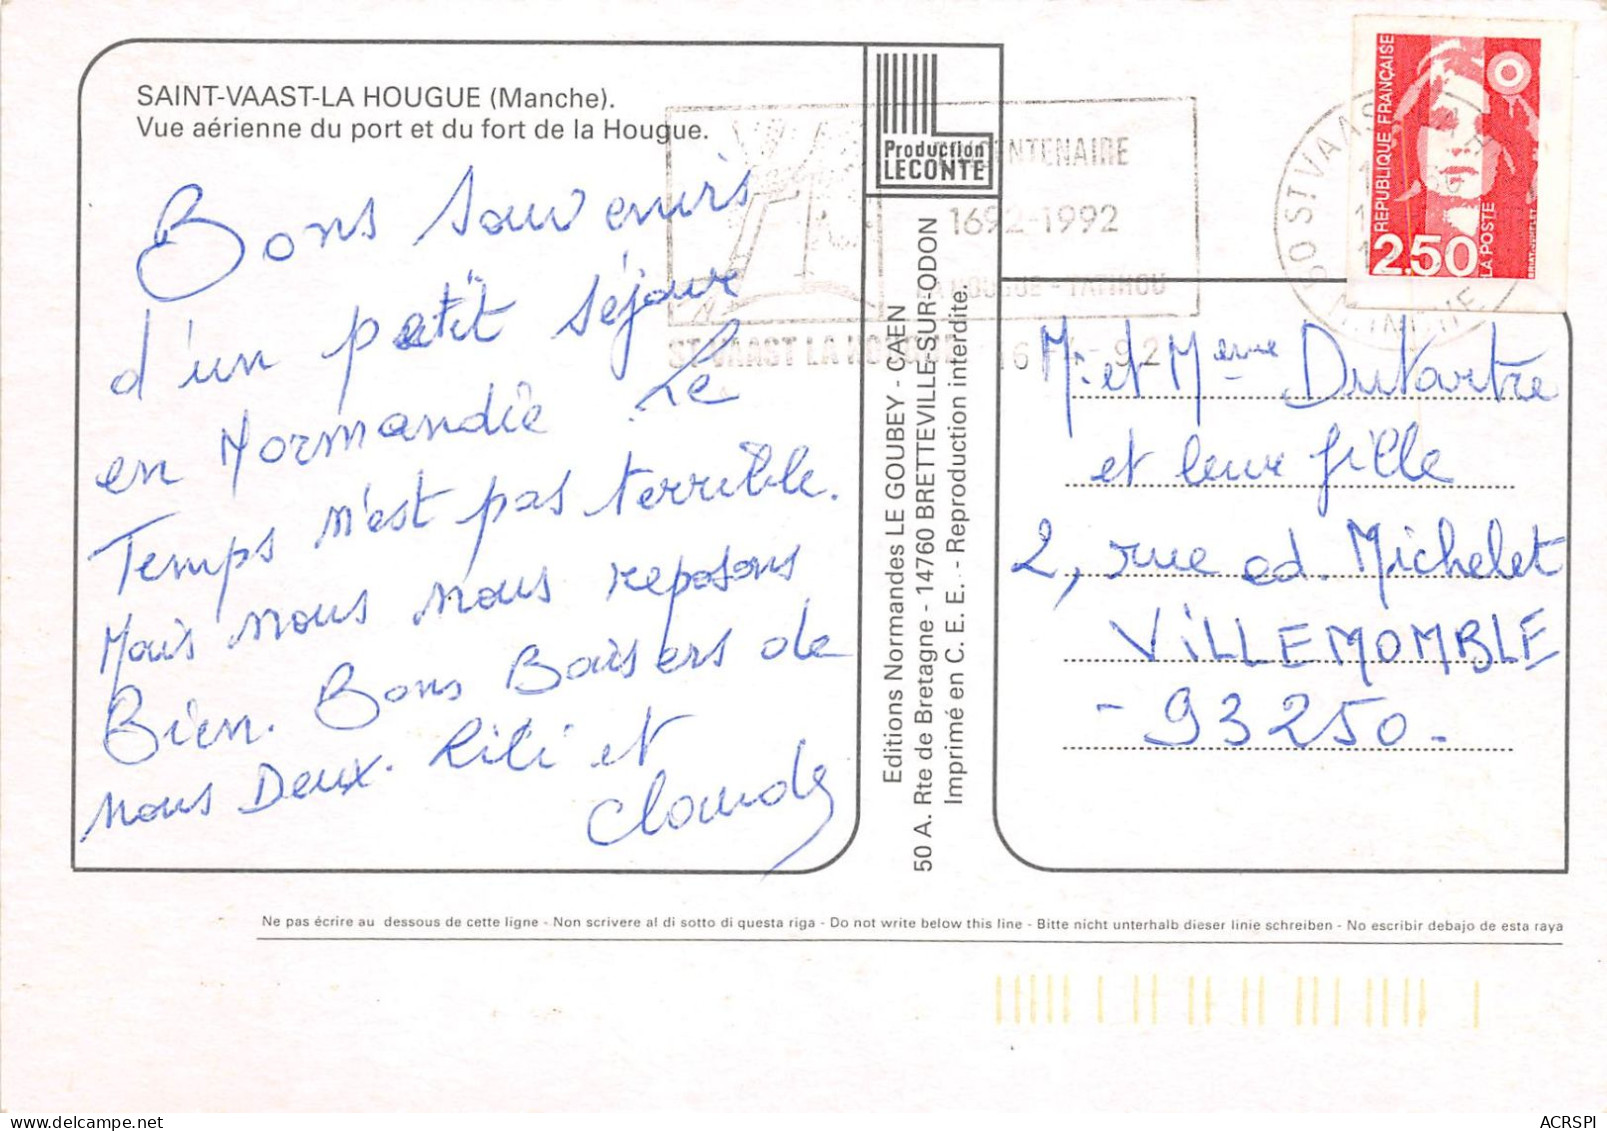 SAINT-VAAST-LA HOUGUE (Manche).
Vue aérienne du port et du fort de la Hougue.
Bons souvenirs
d'un petit séjour
en Normandie. Le
Temps n'est pas terrible.
Mais nous nous reposons
Bien. Bons Baisers de
nous Deux. Lili et
Claude
Production
LECONTE
ENTENAIRE
1692-1992
LA HOUGUE - TATIHOU
ST VAAST LA HOUGUE
Editions Normandes LE GOUBEY - CAEN
50 A. Rte de Bretagne - 14760 BRETTEVILLE-SUR-ODON
Imprimé en C. E. E. - Reproduction interdite.
50 ST VAAST
MANCHE
REPUBLIQUE FRANÇAISE
2,50
LA POSTE
M. et Mme Dutartre
et leur fille
2, rue ed. Michelet
VILLEMOMBLE
- 93250 -
Ne pas écrire au dessous de cette ligne - Non scrivere al di sotto di questa riga - Do not write below this line - Bitte nicht unterhalb dieser linie schreiben - No escribir debajo de esta raya
ACRSPI